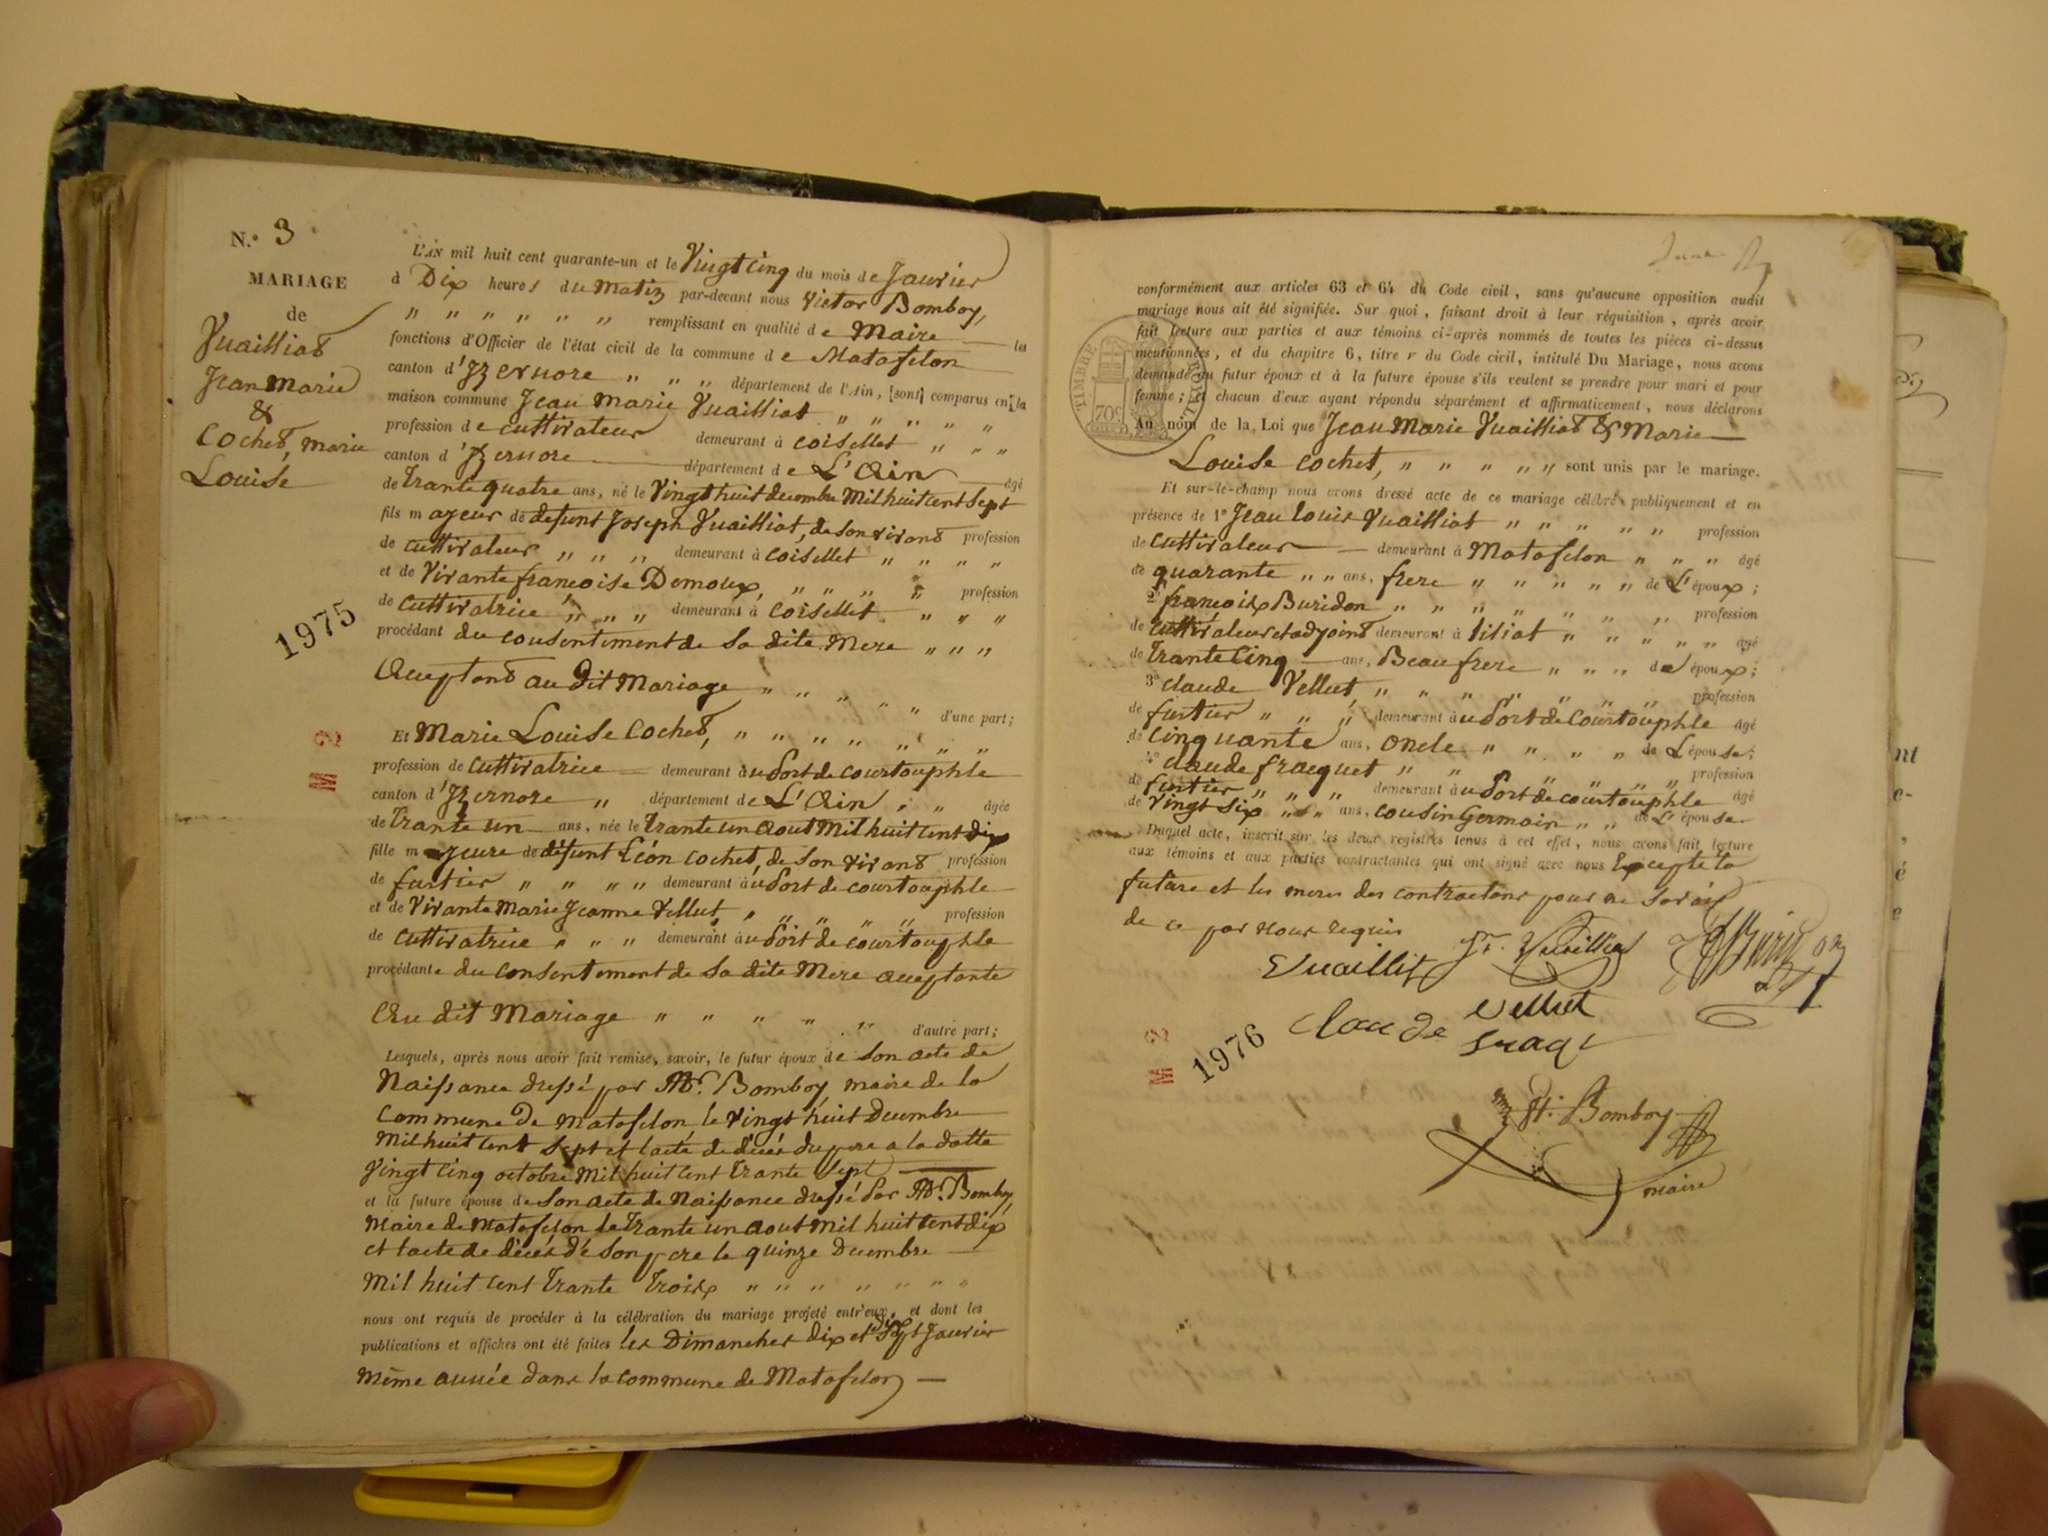 N.° 3
MARIAGE
de
Vuailliat
Jean Marie
&
Cochet, Marie
Louise
1975
L'AN mil huit cent quarante-un et le Vingt Cinq du mois de Janvier
à Dix heures du Matin par-devant nous Victor Bomboy,
" " " " " " remplissant en qualité de Maire les
fonctions d'Officier de l'état civil de la commune de Matafelon
canton d'Izernore " " " département de l'Ain, [sont] comparus en [la
maison commune Jean Marie Vuailliat " " " " "
profession de Cuttivateur demeurant à Coisellet " " "
canton d'Izernore département de L'Ain âgé
de Trante quatre ans, né le Vingt huit decembre Mil huit cent Sept
fils majeur de defunt Joseph Vuailliat, de son vivant profession
de cuttivateur " " " demeurant à Coisellet " " " "
et de Vivante francoise Demoux, " " " " profession
de Cuttivatrice " " " demeurant à Coisellet " " "
procédant du consentement de Sa dite Mere " " "
Aceptant au Dit Mariage " " " " " " d'une part;
Et Marie Louise Cochet, " " " " " " "
profession de Cuttivatrice demeurant àu Port de Courtouphle
canton d'Izernore " département de L'Ain " " âgée
de Trante un ans, née le Trante un Aout Mil huit Cent dix
fille majeure de défunt Léon Cochet, de Son vivant profession
de fustier " " " " demeurant àu Port de Courtouphle
et de Vivante Marie Jeanne Vellut, " " " " profession
de Cuttivatrice " " " demeurant àu Port de Courtouphle
procédante du Consentement de Sa dite Mere aceptante
Au dit Mariage " " " " " d'autre part;
Lesquels, après nous avoir fait remise, savoir, le futur époux de Son acte de
Naissance dressé par Mr. Bomboy maire de la
Commune de Matafelon le Vingt huit Decembre
Mil huit Cent Sept et lacte de décès du pere a la datte
Vingt Cinq octobre Mil huit Cent Trante Sept
et la future épouse de Son acte de Naissance dressé Par Mr. Bomboy,
Maire de Matafelon le Trante un aout Mil huit Cent dix
et lacte de décès de Son pere le quinze Decembre
Mil huit Cent Trante Troix " " " " " " "
nous ont requis de procéder à la célébration du mariage projeté entr'eux, et dont les
publications et affiches ont été faites les Dimanches dix et dix Sept Janvier
même année dans la commune de Matafelon
conformément aux articles 63 et 64 du Code civil, sans qu'aucune opposition audit
mariage nous ait été signifiée. Sur quoi, faisant droit à leur réquisition, après avoir
fait lecture aux parties et aux témoins ci-après nommés de toutes les pièces ci-dessus
mentionnées, et du chapitre 6, titre v du Code civil, intitulé Du Mariage, nous avons
demandé au futur époux et à la future épouse s'ils veulent se prendre pour mari et pour
femme; et chacun d'eux ayant répondu séparément et affirmativement, nous déclarons
Au nom de la Loi que Jean Marie Vuailliat & Marie
Louise Cochet, " " " " " sont unis par le mariage.
Et sur-le-champ nous avons dressé acte de ce mariage célébré publiquement et en
présence de 1° Jean Louis Vuailliat " " " " " profession
de Cuttivateur demeurant à Matafelon " " " âgé
de quarante " " ans, frere " " " " " de L'époux;
2° francoix Buridon " " " " " " " profession
de Cuttivateur et adjoint demeurant à Siliat " " " " " âgé
de Trante Cinq ans, Beau frere " " " de époux;
3° claude Vellut, " " " " " profession
de fustier " " " demeurant àu Port de Courtouphle âgé
de Cinquante ans, Oncle " " " " de L'épouse;
4° claude fracquet " " " " " " profession
de fustier " " " demeurant àu Port de Courtouphle âgé
de Vingt Six " " ans, Cousin Germain " " de L'épouse.
Duquel acte, inscrit sur les deux registres tenus à cet effet, nous avons fait lecture
aux témoins et aux parties contractantes qui ont signé avec nous Excepté la
future et les meres des contractans pour ne Savoir
de ce par nous requis
Vuailliat Jn. Vuailliat
Vellut
Claude
1976
Bomboy
maire
TIMBRE ROYAL
70c